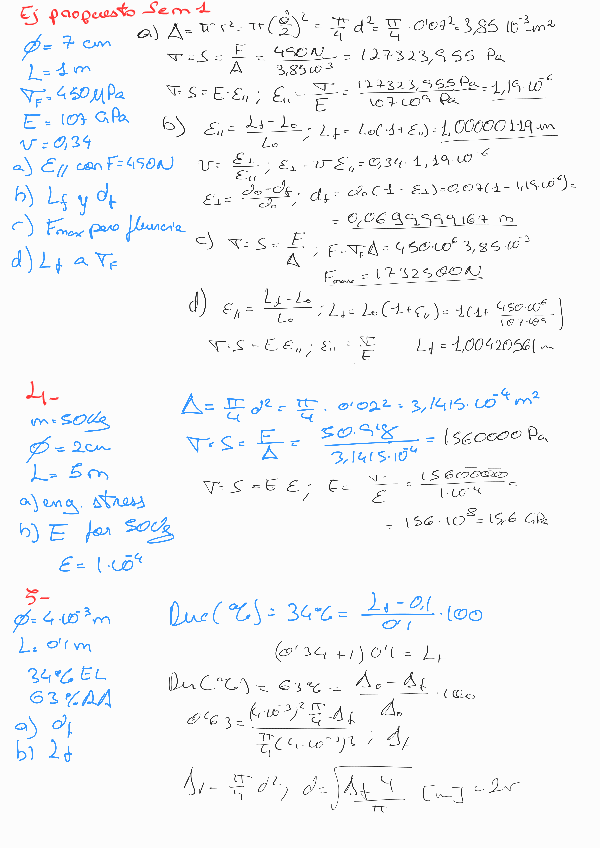 Ej propuesto Sem 1
φ = 7 cm
L = 1 m
σF = 450 MPa
E = 107 GPa
ν = 0,34
a) ε// con F = 490N
b) Lf y df
c) Fmax para fluencia
d) Lf a σF
a) A = π r² = π(φ/2)² = π/4 d² = π/4 · 0'07² = 3,85·10⁻³ m²
σ = S = F/A = 490N/3,85·10⁻³ = 127323,955 Pa
σ = S = E·ε// ; ε// = σ/E = 127323,955 Pa/107·10⁹ Pa = 1,19·10⁻⁶
b) ε// = Lf - L0/L0 ; Lf = L0(1+ε//) = 1,00000119 m
ν = ε⊥/ε// ; ε⊥ = νε// = 0,34·1,19·10⁻⁶
ε⊥ = d0 - df/d0 ; df = d0(1 - ε⊥) = 0,07(1 - 1,19·10⁻⁶) =
= 0,0699999167 m
c) σ = S = F/A ; F = σF A = 450·10⁶·3,85·10⁻³
Fmax = 1732500N
d) ε// = Lf - L0/L0 ; Lf = L0(1+ε//) = 1(1+ 450·10⁶/107·10⁹)
σ = S = E ε// ; ε// = σ/E Lf = 1,00420561 m
4-
m = 50kg
φ = 2cm
L = 5 m
a) eng. stress
b) E for 50kg
ε = 1·10⁻⁴
A = π/4 d² = π/4 · 0'02² = 3,1415·10⁻⁴ m²
σ = S = F/A = 50·9'8/3,1415·10⁻⁴ = 1560000 Pa
σ = S = E ε ; E = σ/ε = 1560000/1·10⁻⁴ =
= 156·10⁸ = 15,6 GPa
5-
φ = 4·10⁻³ m
L = 0'1 m
34% EL
63% AA
a) df
b) Lf
Duc(%) = 34% = Lf - 0,1/0'1 · 100
(0'34 + 1) 0'1 = Lf
Duc(%) = 63% = A0 - Af/A0 · 100
0'63 = (4·10⁻³)² π/4 - Af/π/4 (4·10⁻³)² ; Af
Af = π/4 d² ; d = √Af 4/π [m] = 2r